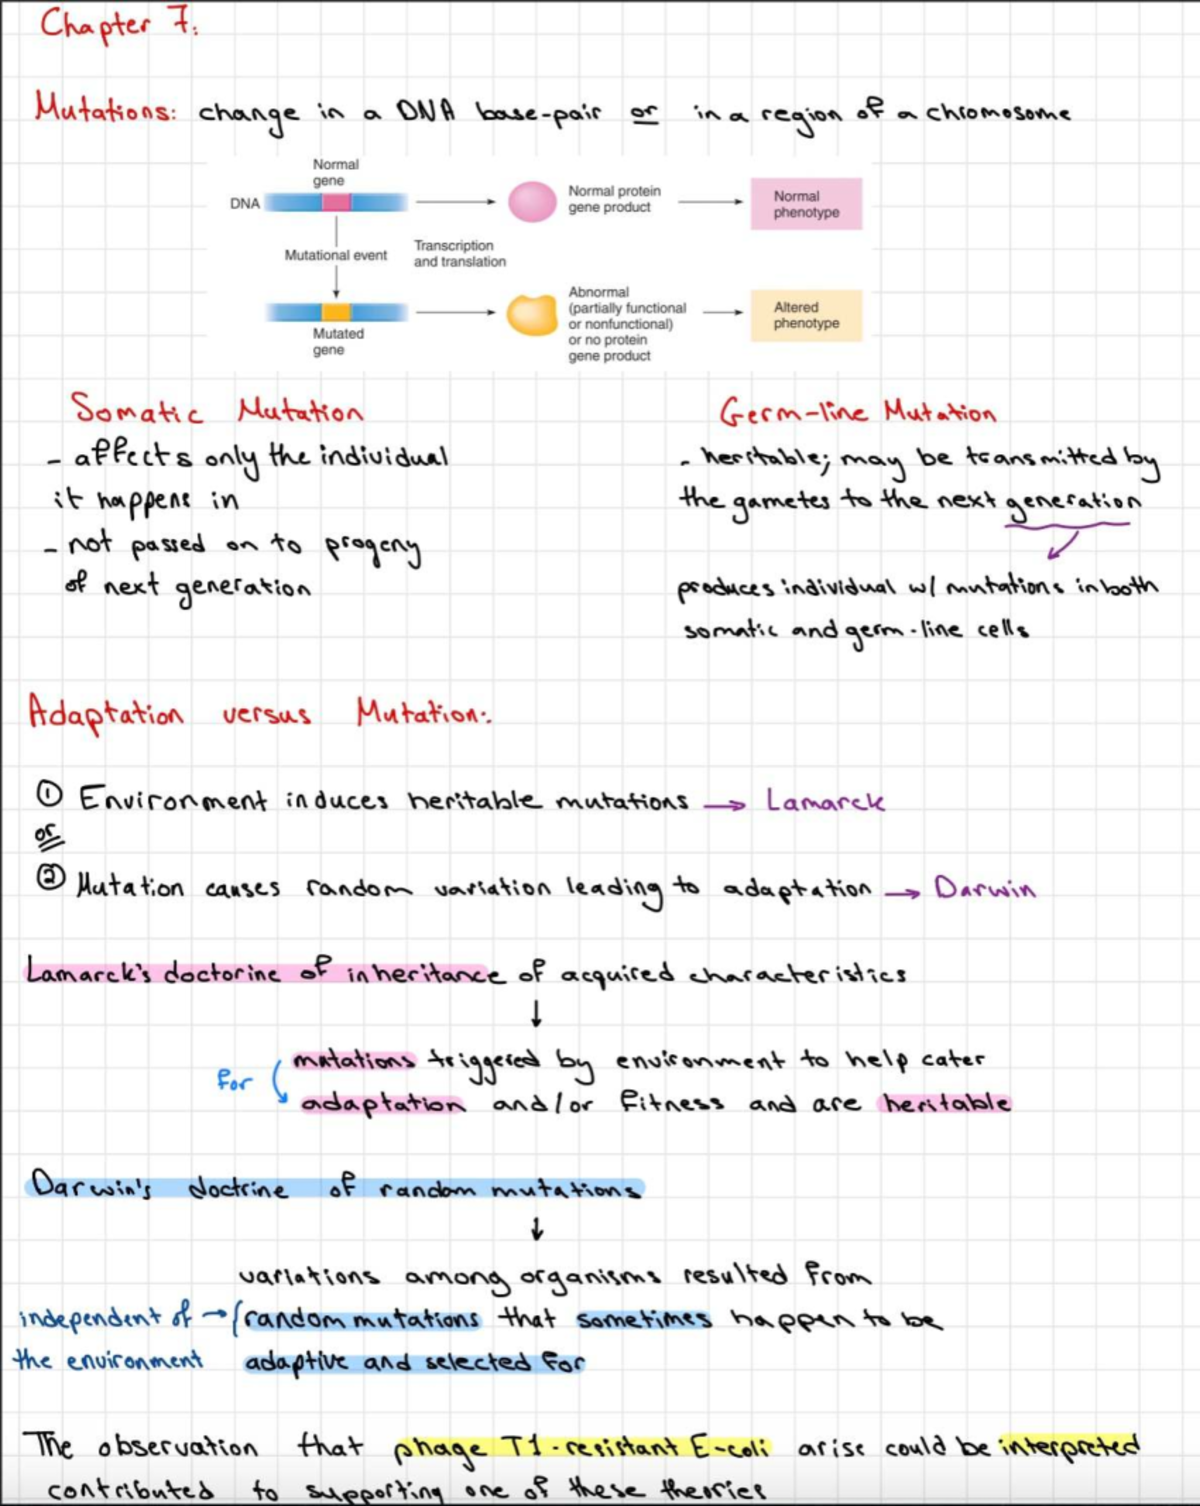 Chapter 7:
Mutations: change in a DNA base-pair or in a region of a chromosome
Normal
gene
DNA
Normal protein
gene product
Normal
phenotype
Mutational event
Transcription
and translation
Mutated
gene
Abnormal
(partially functional
or nonfunctional)
or no protein
gene product
Altered
phenotype
Somatic Mutation
- affects only the individual
it happens in
- not passed on to progeny
of next generation
Germ-line Mutation
- heritable; may be transmitted by
the gametes to the next generation
produces individual w/ mutations in both
somatic and germ-line cells
Adaptation versus Mutation:
① Environment induces heritable mutations → Lamarck
or
② Mutation causes random variation leading to adaptation → Darwin
Lamarck's doctorine of inheritance of acquired characteristics
↓
mutations triggered by environment to help cater
for
adaptation and/or fitness and are heritable
Darwin's doctrine of random mutations
↓
variations among organisms resulted from
independent of → random mutations that sometimes happen to be
the environment adaptive and selected for
The observation that phage T1-resistant E-coli arise could be interpreted
contributed to supporting one of these theories